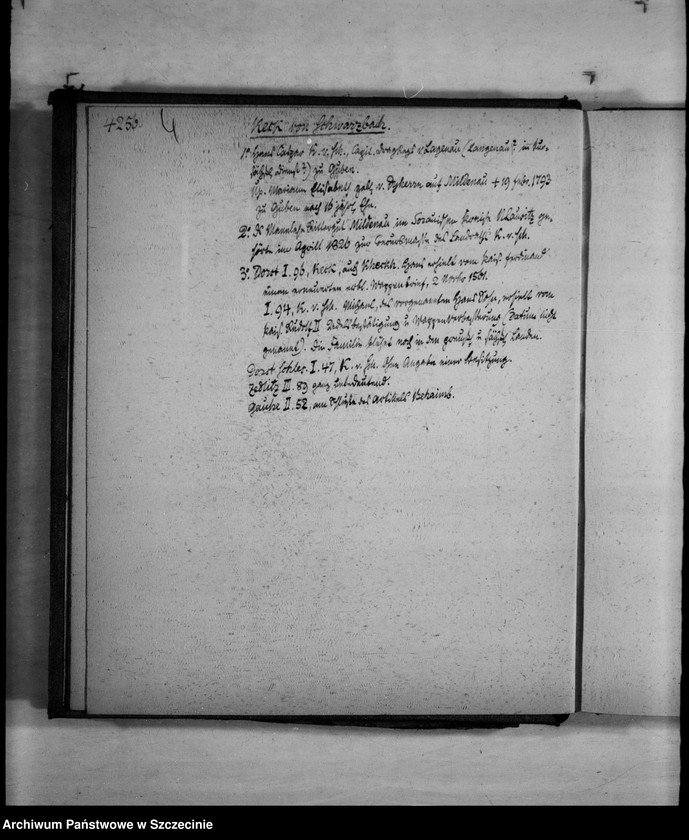 4256.
Keck von Schwarzbach.
1º Hans Caspar K. v. Sch., Agil. DragRegts v. Lagenau (Langenau? in
) zu Guben.
Elisabeth geb. v. Dyherrn auf Mildenau + 19 Febr. 1793
zu Guben nach 16 jähr. Ehe.
2º Das Mannlehn Rittergut Mildenau im Sorauischen Kreise NLausitz ge-
hörte im April 1826 zur Concursmasse des Landraths K. v. Sch.
3º Dorst I. 96, Keck, auch Kheckh. Hans erhielt vom Kais. Ferdinand
einen erneuerten adel. Wappenbrief, 2 Novbr 1561.
I. 94, K. v. Sch. Michael, des vorgenannten Hans Sohn, erhielt vom
Kais. Rudolf II Adelsbestätigung u Wappenverbesserung (Datum nicht
genannt). Die Familie blüht noch in den preuß. u sächs. Landen.
Dorst Schles. I. 47, K. v. Sch. Ohne Angabe einer Besitzung.
Zedlitz III. 83 ganz unbedeutend.
Gauhe II. 52, am Schluße des Artikels Behaimb.
Archiwum Państwowe w Szczecinie